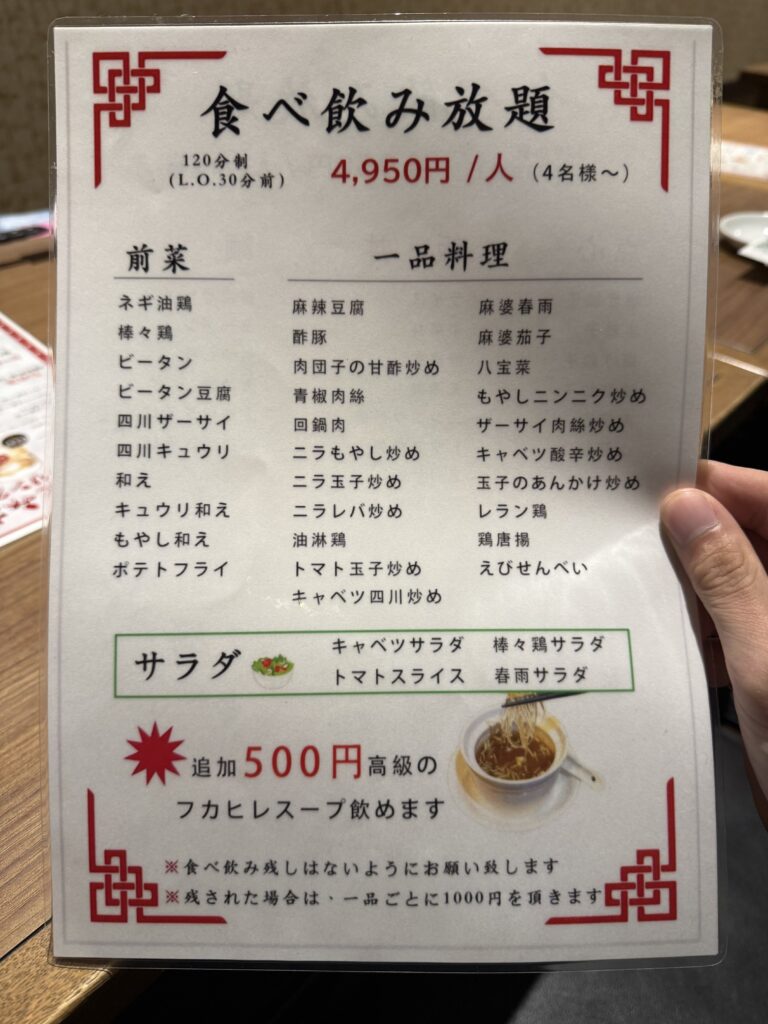 食べ飲み放題
120分制
(L.O.30分前)
4,950円 / 人 (4名様～)
前菜
ネギ油鶏
棒々鶏
ピータン
ピータン豆腐
四川ザーサイ
四川キュウリ
和え
キュウリ和え
もやし和え
ポテトフライ
一品料理
麻辣豆腐
酢豚
肉団子の甘酢炒め
青椒肉絲
回鍋肉
ニラもやし炒め
ニラ玉子炒め
ニラレバ炒め
油淋鶏
トマト玉子炒め
キャベツ四川炒め
麻婆春雨
麻婆茄子
八宝菜
もやしニンニク炒め
ザーサイ肉絲炒め
キャベツ酸辛炒め
玉子のあんかけ炒め
レラン鶏
鶏唐揚
えびせんべい
サラダ
キャベツサラダ 棒々鶏サラダ
トマトスライス 春雨サラダ
追加500円高級の
フカヒレスープ飲めます
※食べ飲み残しはないようにお願い致します
※残された場合は、一品ごとに1000円を頂きます